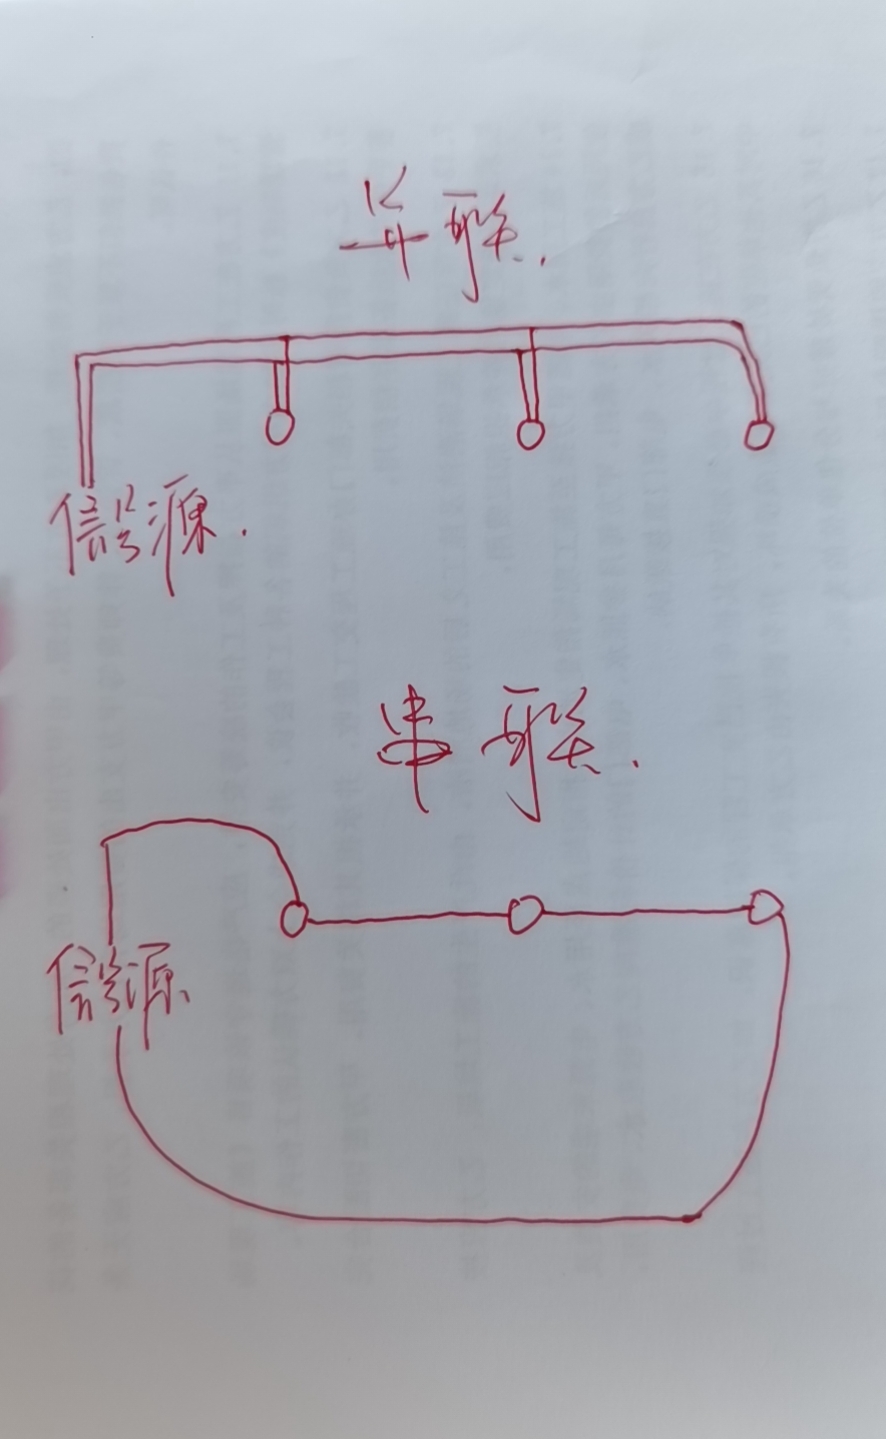 并联.
信号源.
串联.
信号源.